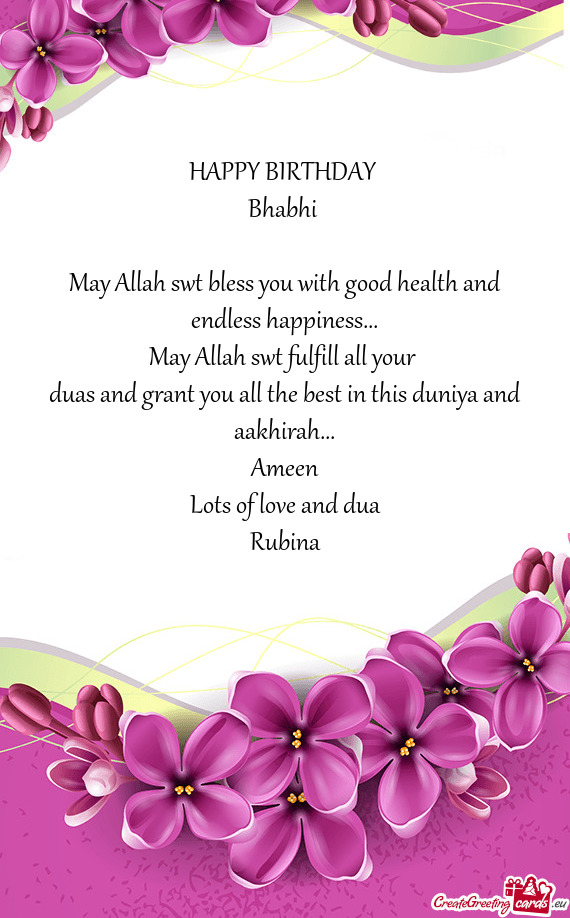 HAPPY BIRTHDAY
Bhabhi
May Allah swt bless you with good health and
endless happiness...
May Allah swt fulfill all your
duas and grant you all the best in this duniya and
aakhirah...
Ameen
Lots of love and dua
Rubina
CreateGreeting cards .eu